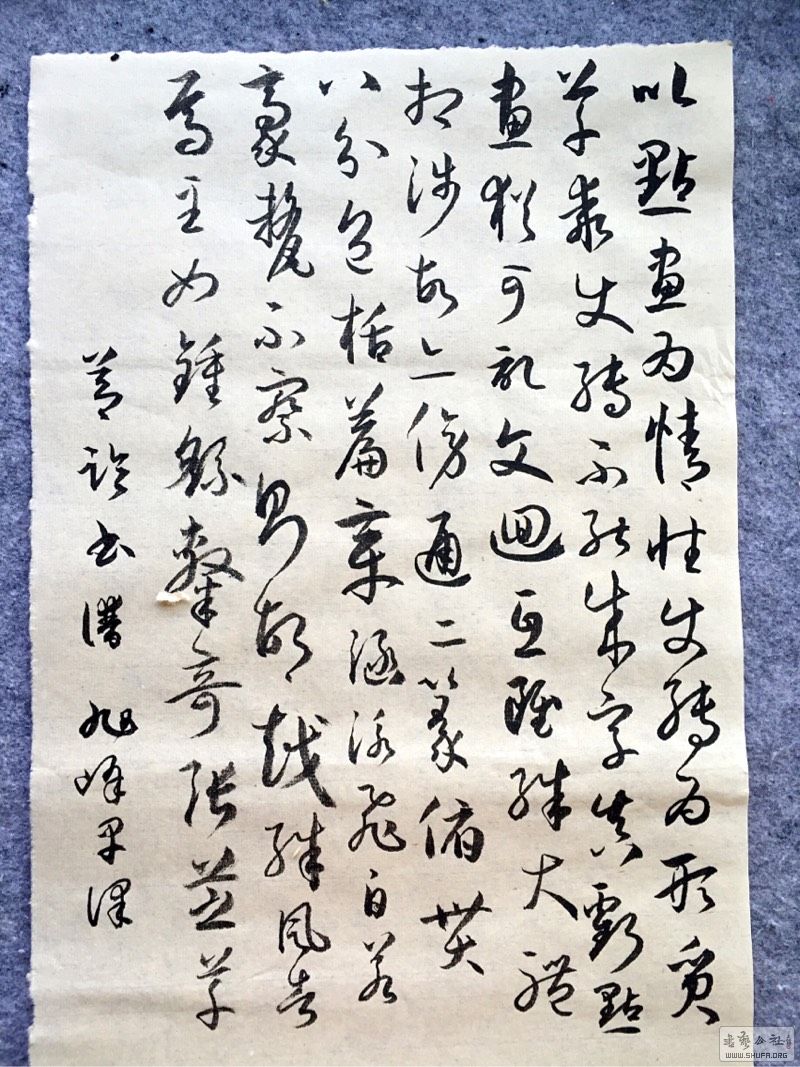 以點畫為情性使轉為形質
草乖使轉不能成字真虧點
畫猶可記文迴互雖殊大體
相涉故亦傍通二篆俯貫
八分包括篇章涵泳飛白若
豪釐不察則胡越殊風者
焉至如鍾繇隸奇張芝草
節臨書譜 旭峰
書藝公社
WWW.SHUFA.ORG